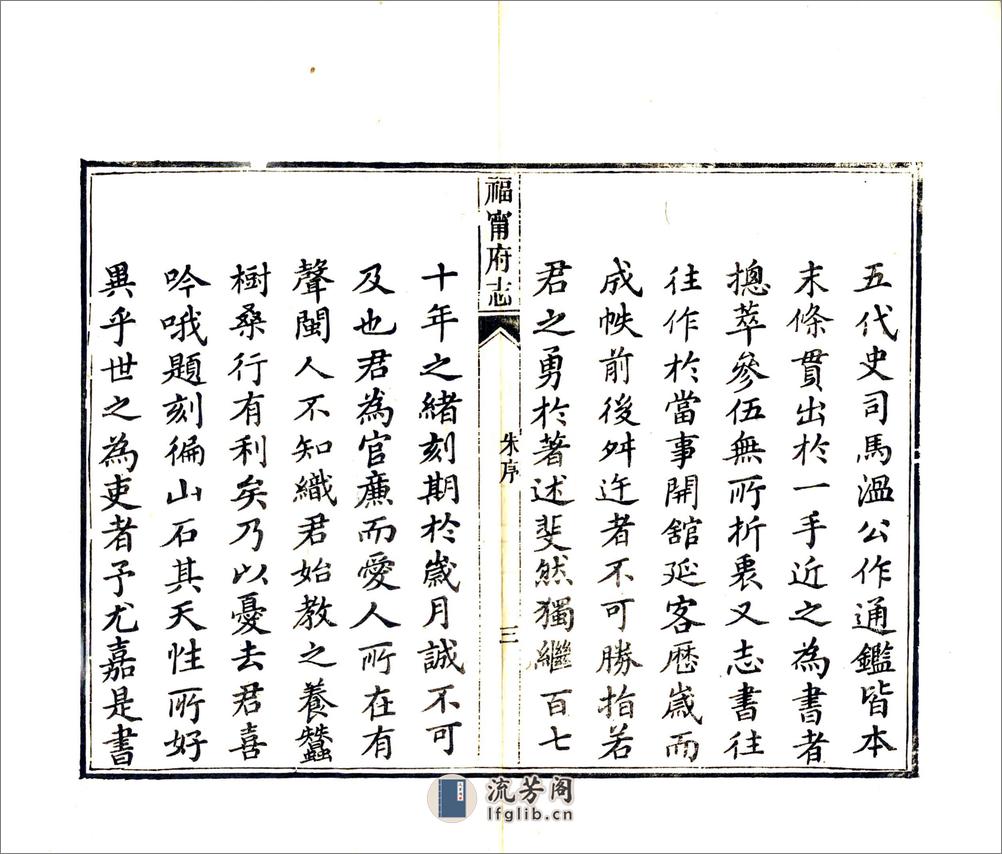 五代史司馬溫公作通鑑皆本
末條貫出於一手近之為書者
摠萃參伍無所折衷又志書往
往作於當事開舘延客歴歲而
成帙前後舛迕者不可勝指若
君之勇於著述斐然獨繼百七
福甯府志
朱序
三
十年之緒刻期於歲月誠不可
及也君為官亷而愛人所在有
聲閩人不知織君始教之養蠶
樹桑行有利矣乃以憂去君喜
吟哦題刻徧山石其天性所好
異乎世之為吏者予尤嘉是書
流芳阁
lfglib.cn